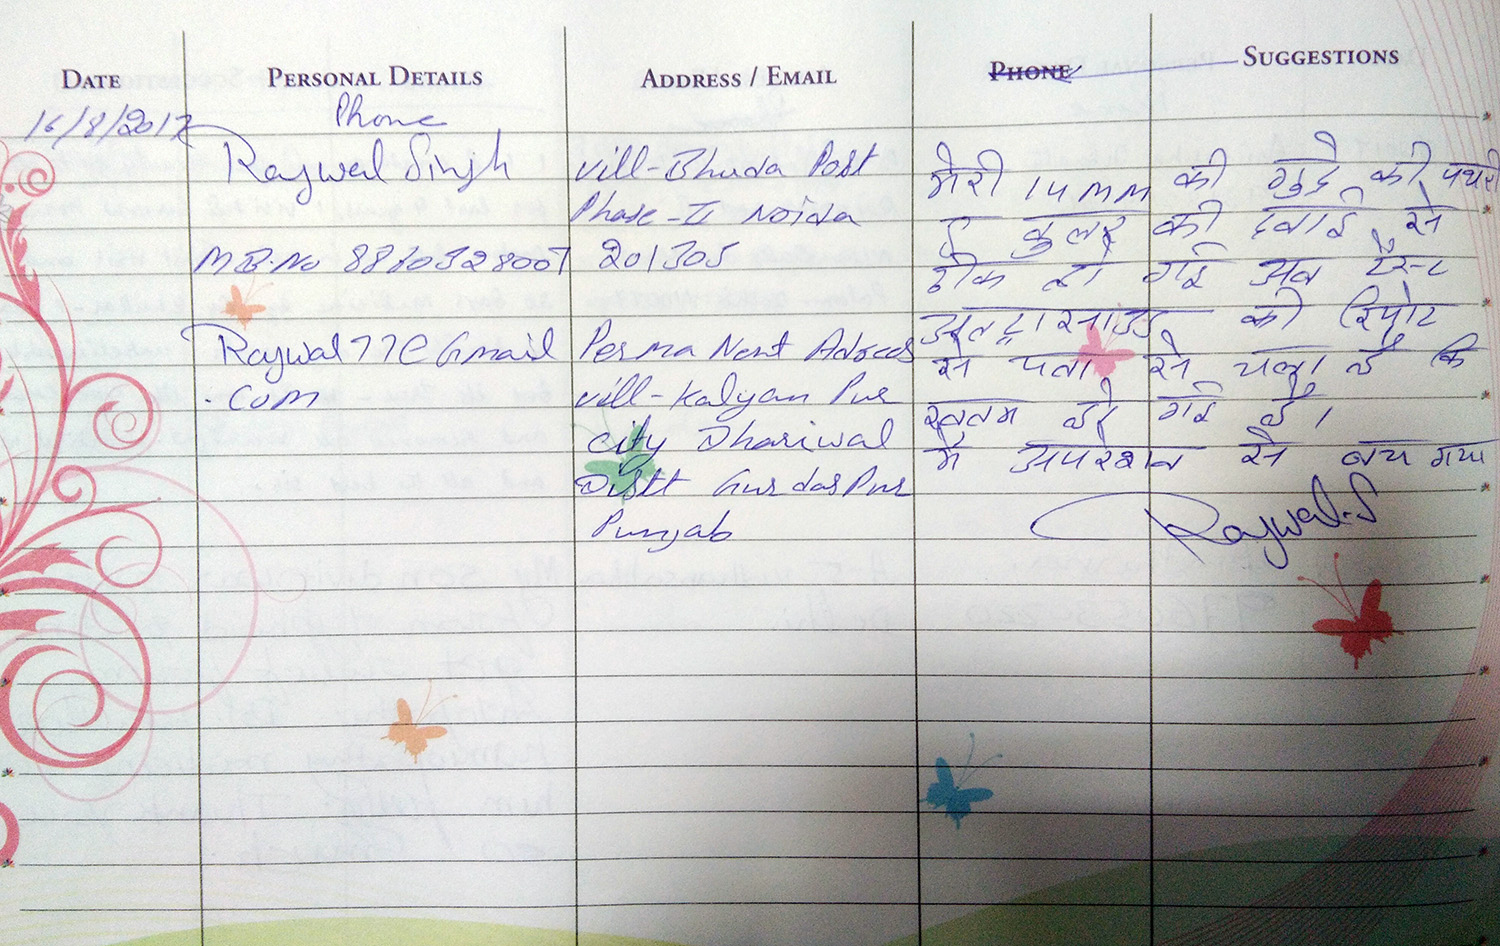 DATE
PERSONAL DETAILS
ADDRESS / EMAIL
PHONE
SUGGESTIONS
16/8/2017
Phone
Rajwal Singh
MB.No
Rajwal77@Gmail
.Com
Vill-Bhuda Post
Phase-II Noida
201305
Permanent Adress
Vill-Kalyan Pur
City Dhariwal
Distt Gurdas Pur
Punjab
मेरी 14MM की गुर्दे की पथरी
की दवाई से
ठीक हो गई अब
की रिपोर्ट
से पता से चला है कि
खतम हो गई है।
मैं आपरेशन से बच गया
Rajwal.S